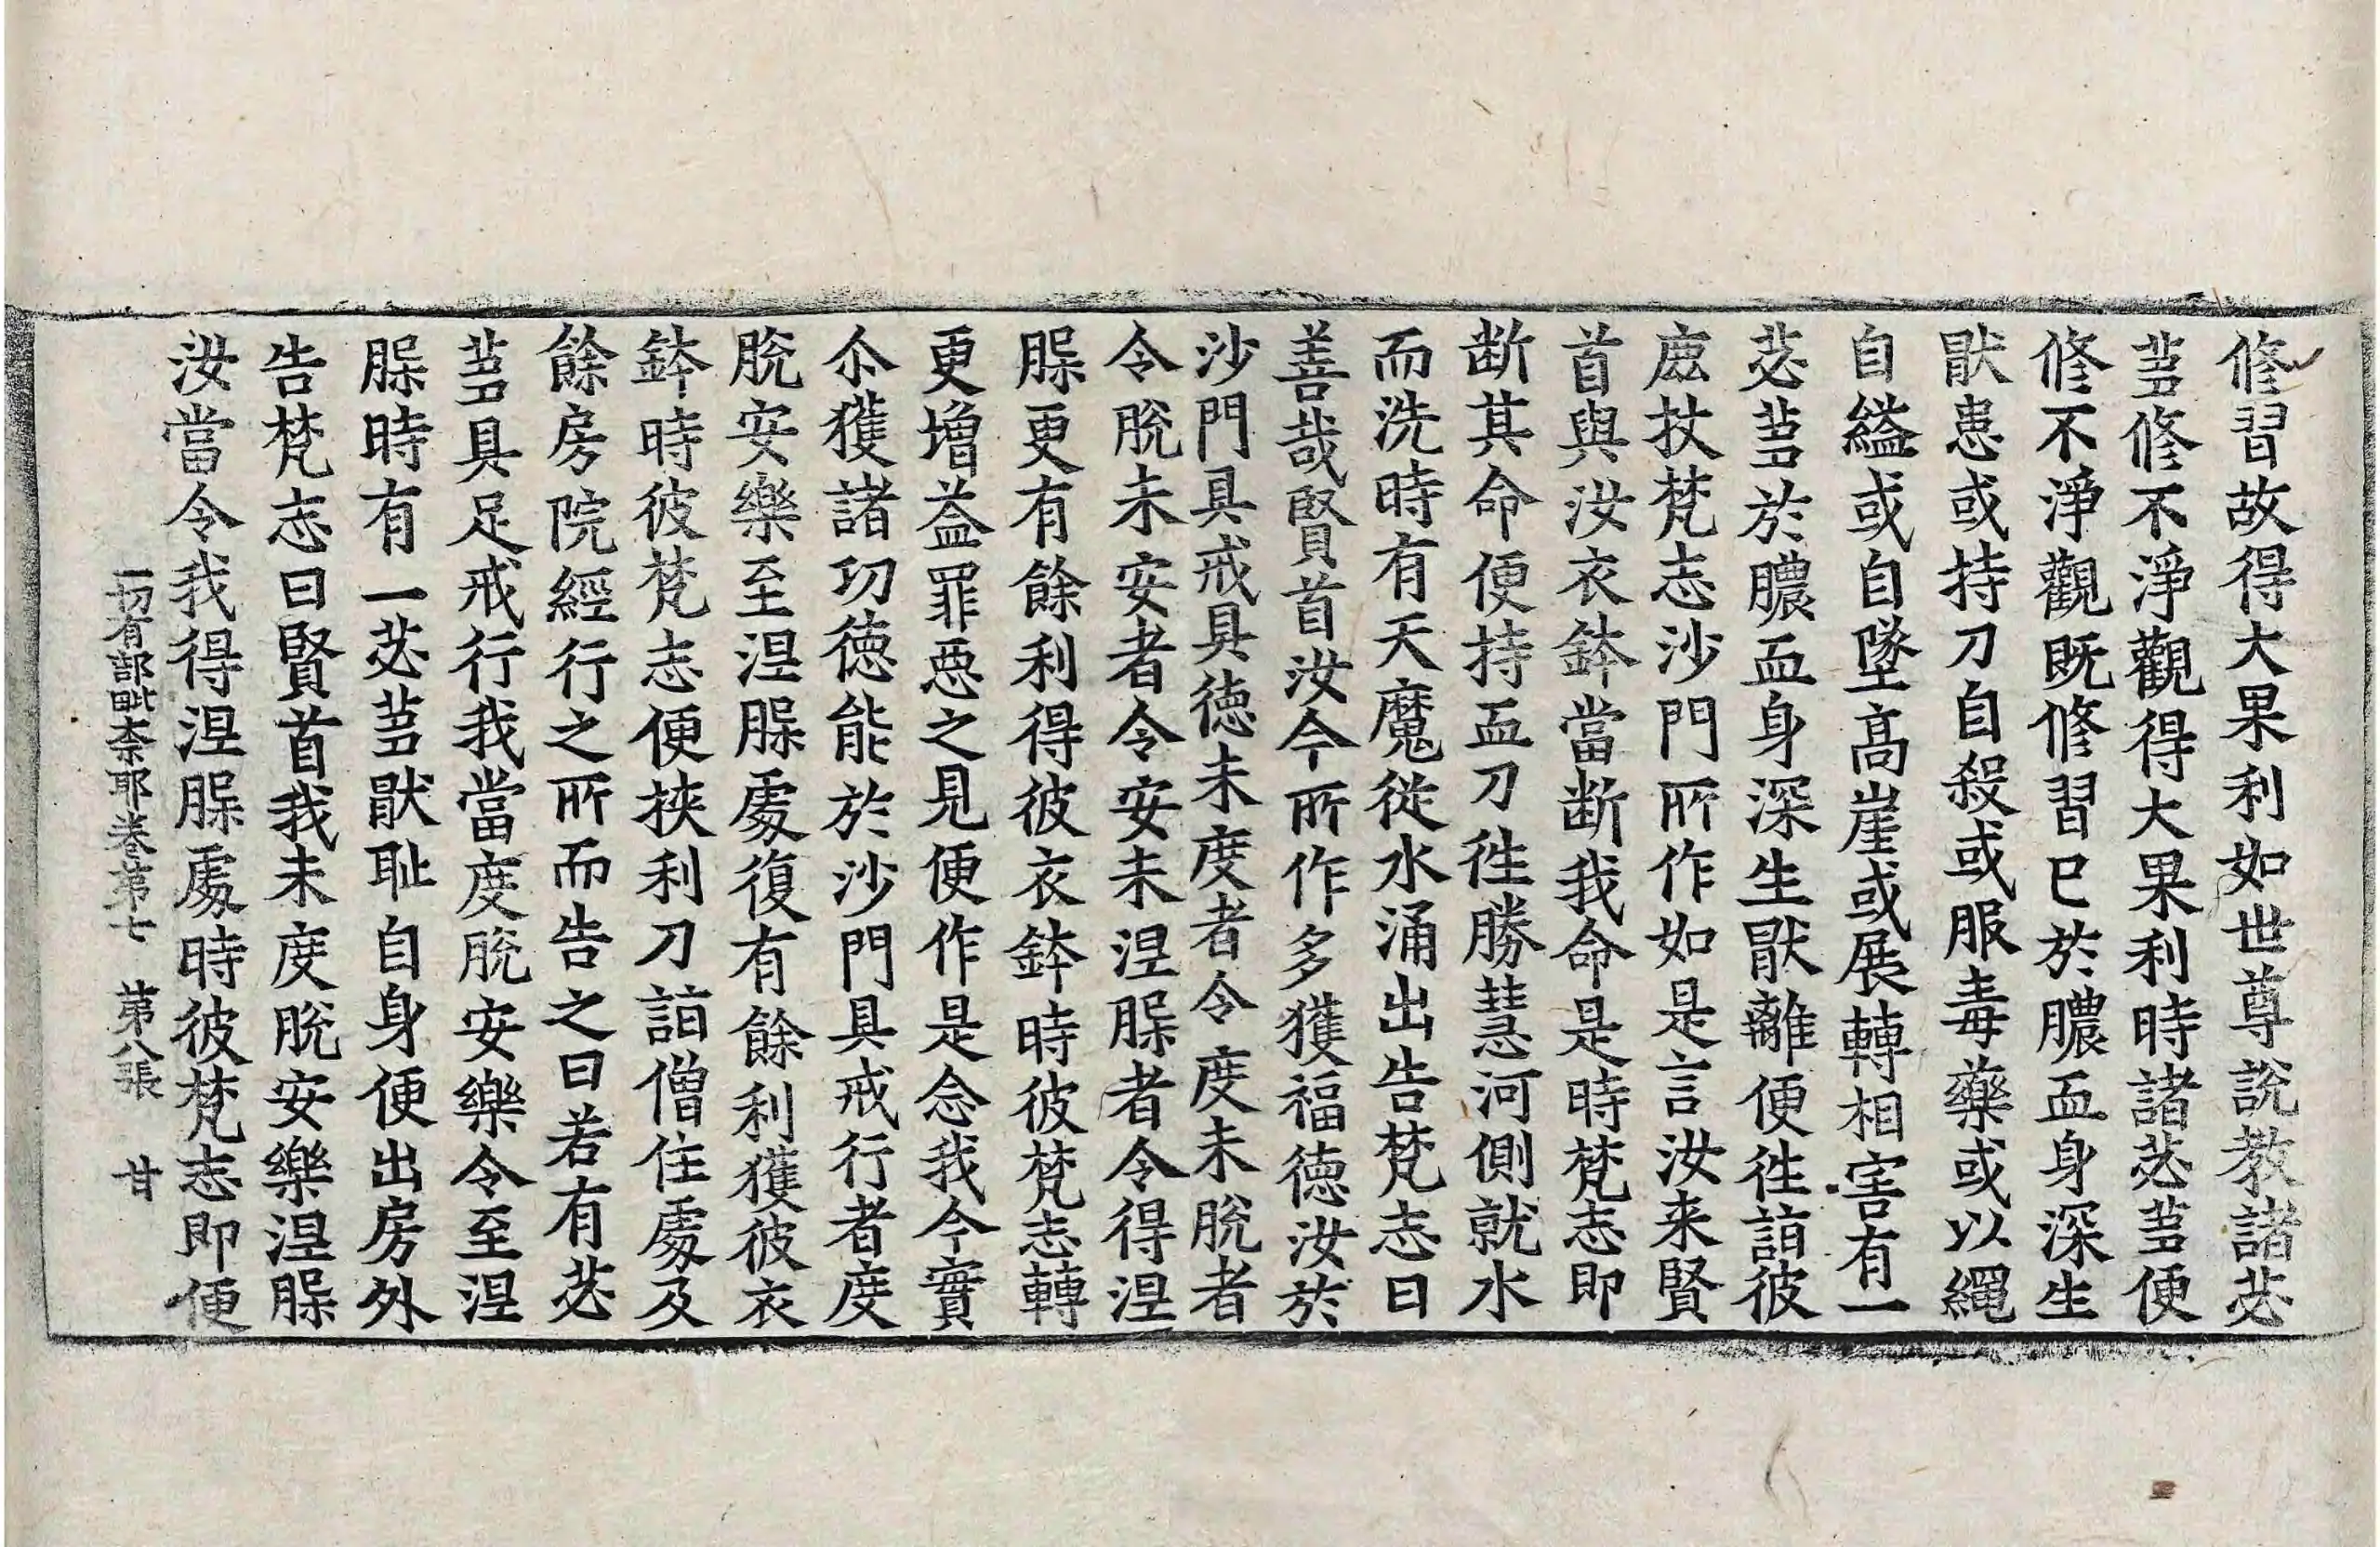 修習故得大果利如世尊說教諸苾
蒭修不淨觀得大果利時諸苾蒭便
修不淨觀既修習已於膿血身深生
猒患或持刀自殺或服毒藥或以繩
自縊或自墜高崖或展轉相害有一
苾蒭於膿血身深生猒離便往詣彼
鹿杖梵志沙門所作如是言汝来賢
首與汝衣鉢當断我命是時梵志即
断其命便持血刀往勝慧河側就水
而洗時有天魔從水涌出告梵志曰
善哉賢首汝今所作多獲福德汝於
沙門具戒具德未度者令度未脫者
令脫未安者令安未涅槃者令得涅
槃更有餘利得彼衣鉢時彼梵志轉
更增益罪惡之見便作是念我今實
尒獲諸功德能於沙門具戒行者度
脫安樂至涅槃處復有餘利獲彼衣
鉢時彼梵志便挾利刀詣僧住處及
餘房院經行之所而告之曰若有苾
蒭具足戒行我當度脫安樂令至涅
槃時有一苾蒭猒耻自身便出房外
告梵志曰賢首我未度脫安樂涅槃
汝當令我得涅槃處時彼梵志即便
一切有部毗奈耶卷第七　第八張　甘